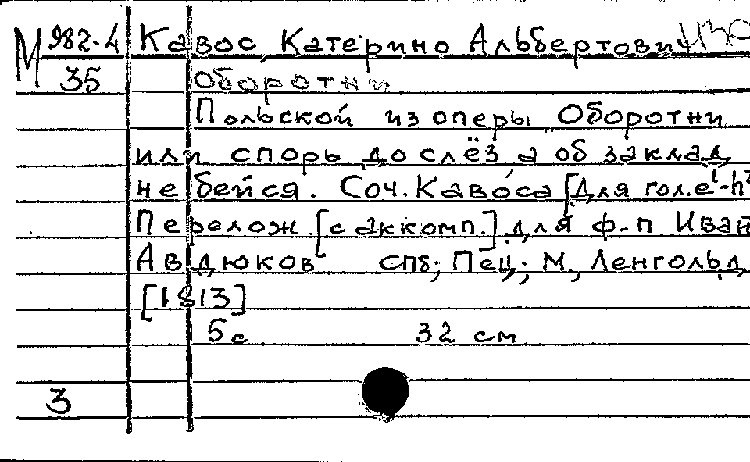 М 982-4 Кавос, Катерино Альбертович
35 Оборотни
Польской из оперы Оборотни
или спорь до слёз а об заклад
не бейся. Соч. Кавоса [Для гол. e¹-h²
Перелож. [с аккомп.] для ф-п Иван
Авдюков СПб; Пец; М, Ленгольд,
[1813]
5 с. 32 см
3